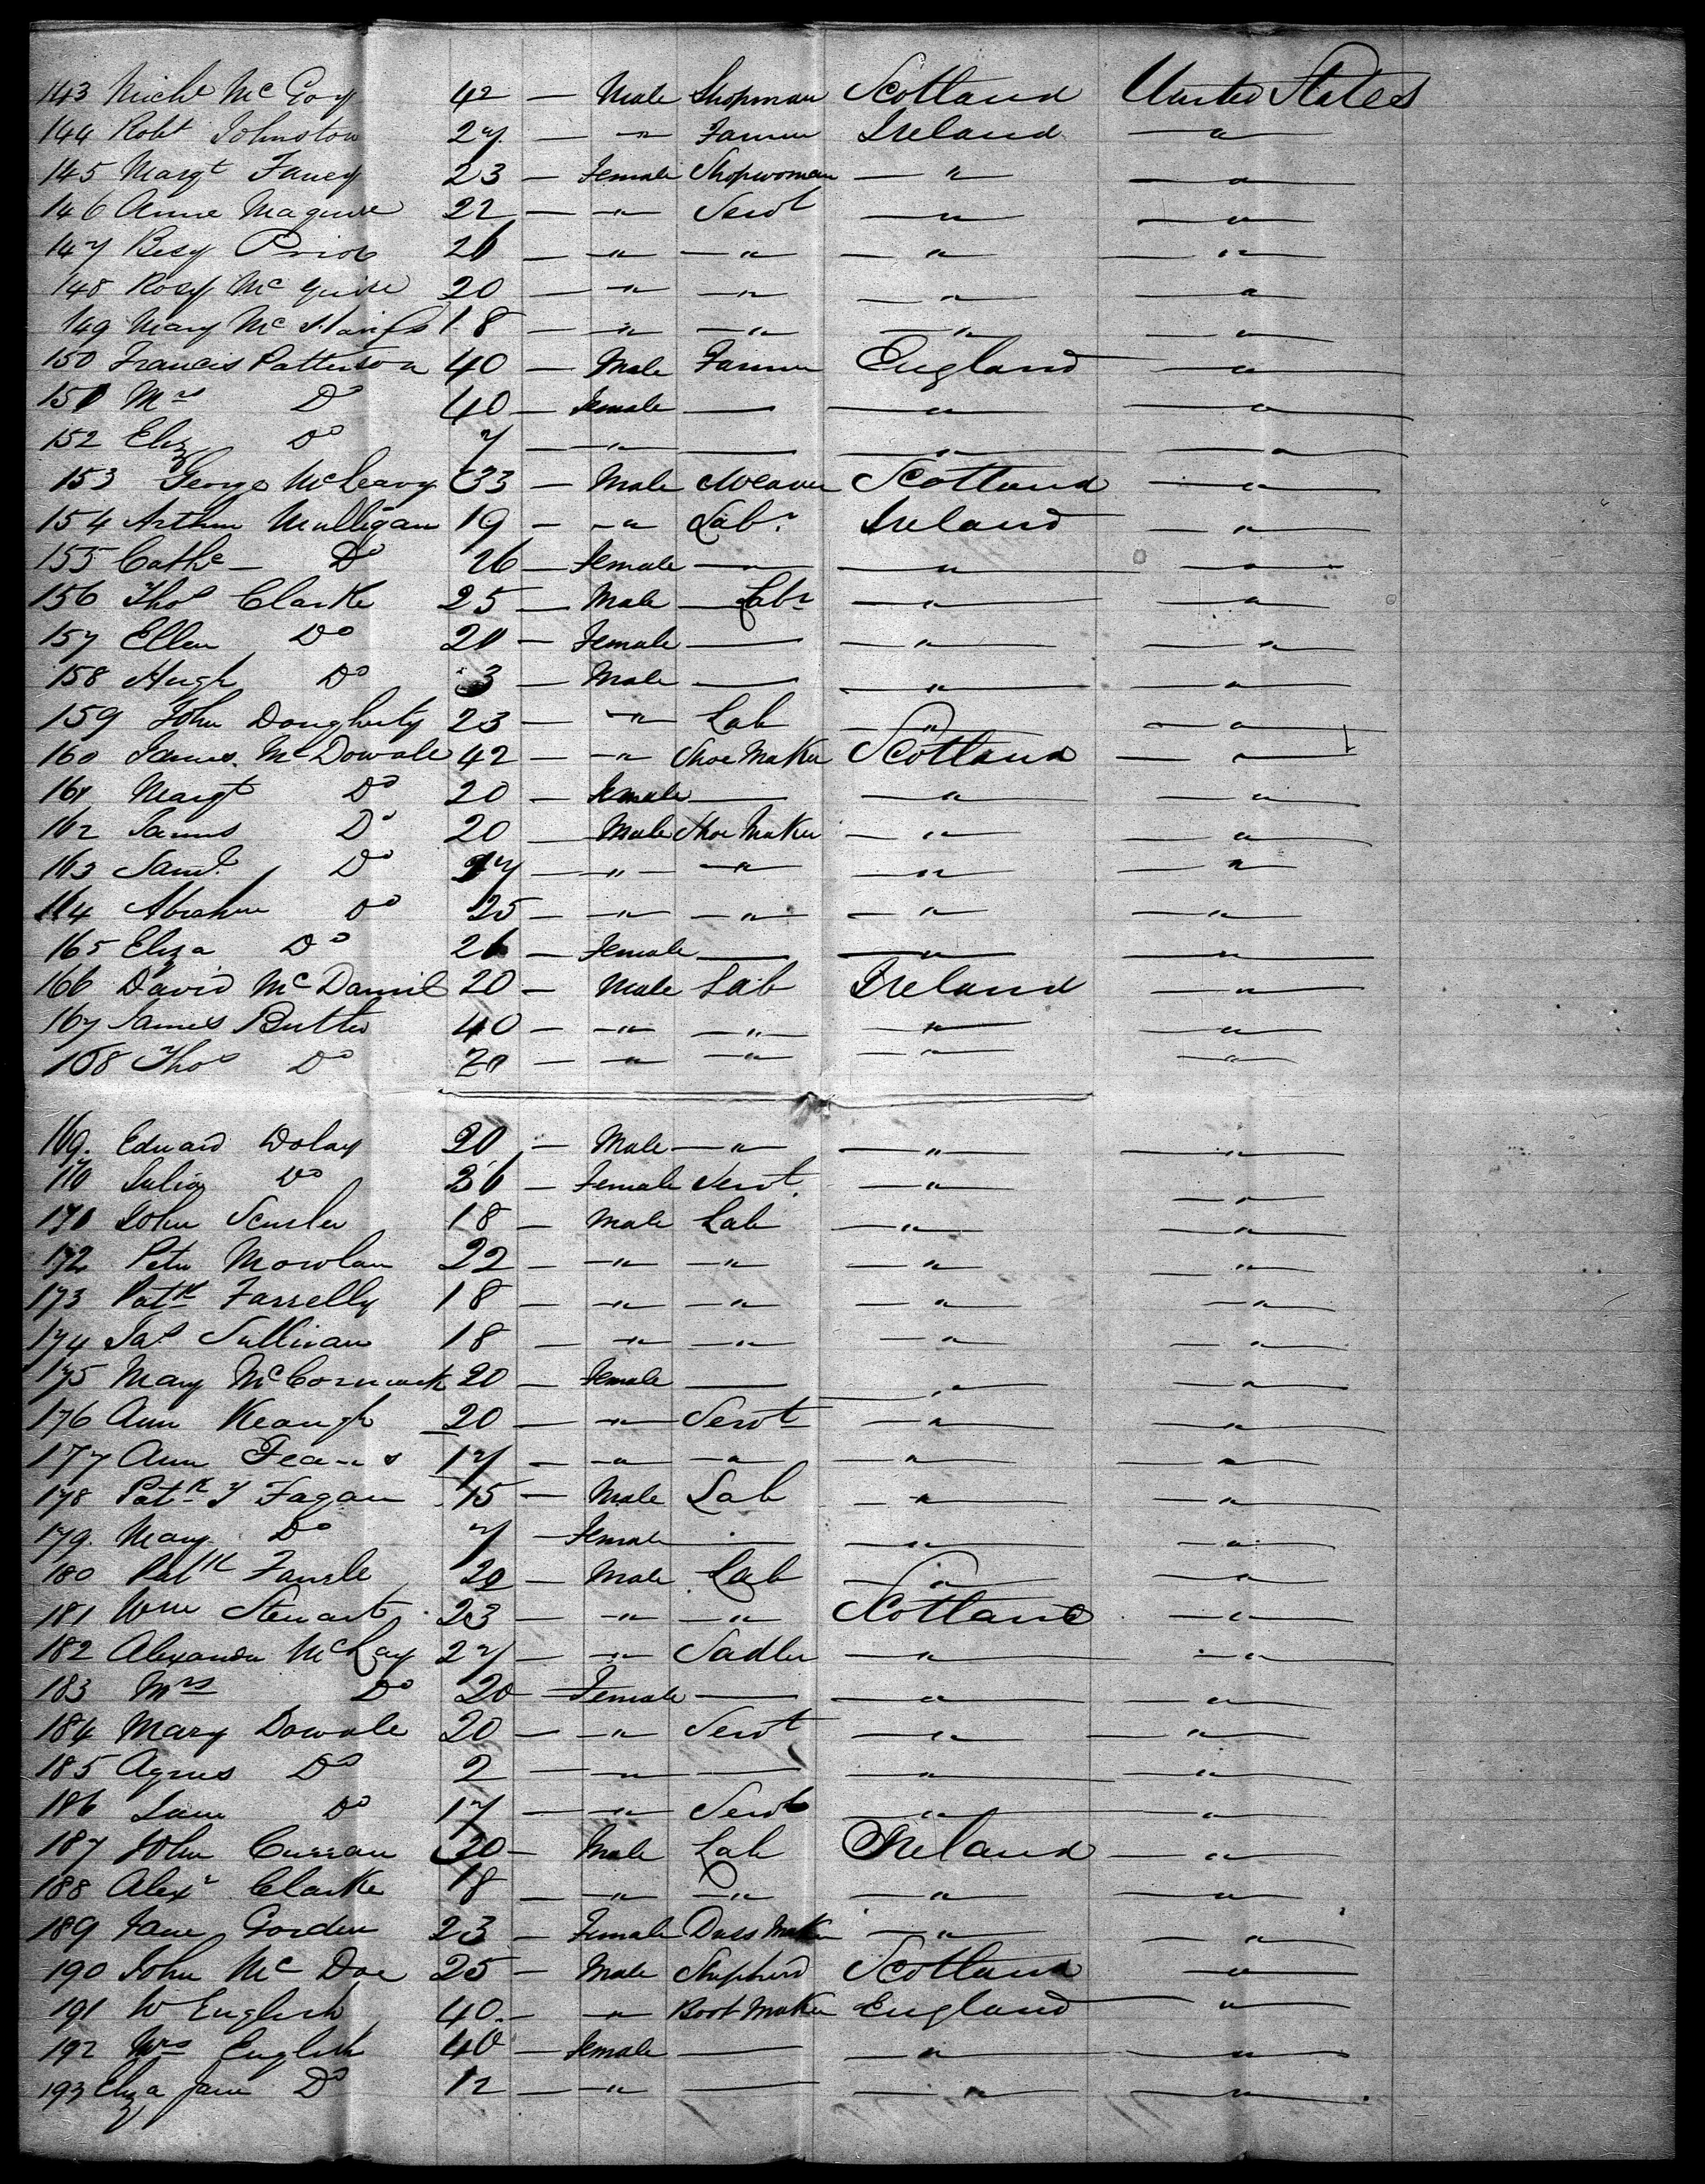 143 Michl McCoy 42 — Male Shopman Scotland United States
144 Robt Johnston 27 — " Farmer Ireland — " —
145 Margt Faney 23 — Female Shopwoman — " — — " —
146 Anne Maguire 22 — " — Servt — " — — " —
147 Besy Prior 26 — " — — " — — " — — " —
148 Rosy McGuire 20 — " — — " — — " — — " —
149 Mary Mc 18 — " — — " — — " — — " —
150 Francis Patterson 40 — Male Farmer England — " —
151 Mrs Do 40 — Female — — " — — " —
152 Eliz Do 7 — " — — — " — — " —
153 George McCleavy 33 — Male Weaver Scotland — " —
154 Arthur Mulligan 19 — " Labr Ireland — " —
155 Cathe — Do 26 — Female — " — — " — — " —
156 Thos Clarke 25 — Male — Labr — " — — " —
157 Ellen Do 20 — Female — — " — — " —
158 Hugh Do 3 — Male — — " — — " —
159 John Dougherty 23 — " Lab — " — — " —
160 James McDowale 42 — " Shoe Maker Scotland — " —
161 Margt Do 20 — Female — — " — — " —
162 James Do 20 — Male Shoe Maker — " — — " —
163 Saml Do 27 — " — — " — — " — — " —
164 Abraham Do 25 — " — — " — — " — — " —
165 Eliza Do 26 — Female — — " — — " —
166 David McDaniel 20 — Male Lab Ireland — " —
167 James Butler 40 — " — — " — — " — — " —
168 Thos Do 20 — " — — " — — " — — " —
169. Edward Dolay 20 — Male — " — — " — — " —
170 Julia Do 26 — Female Servt. — " — — " —
171 John 18 — Male Lab — " — — " —
172 Peter Mowlan 22 — " — — " — — " — — " —
173 Patk Farrelly 18 — " — — " — — " — — " —
174 Jas Sullivan 18 — " — — " — — " — — " —
175 Mary McCormack 20 — Female — — " — — " —
176 Ann Keough 20 — " — Servt — " — — " —
177 Ann 17 — " — — " — — " — — " —
178 Patk Fagan 15 — Male Lab — " — — " —
179. Mary Do 7 — Female — — " — — " —
180 Patk 20 — Male Lab — " — — " —
181 Wm Stewart 23 — " — — " — Scotland — " —
182 Alexander McKay 27 — " — Sadler — " — — " —
183 Mrs Do 20 — Female — — " — — " —
184 Mary Dowale 20 — " — Servt — " — — " —
185 Agnes Do 2 — " — — — " — — " —
186 Jane Do 17 — " — Servt — " — — " —
187 John Curran 20 — Male Lab Ireland — " —
188 Alexr Clarke 18 — " — — " — — " — — " —
189 Jane Gorden 23 — Female Dress Maker — " — — " —
190 John McDoe 25 — Male Shepherd Scotland — " —
191 W English 40. — " Boot Maker England — " —
192 Mrs English 40 — Female — — " — — " —
193 Eliza Jane Do 12 — " — — — " — — " —